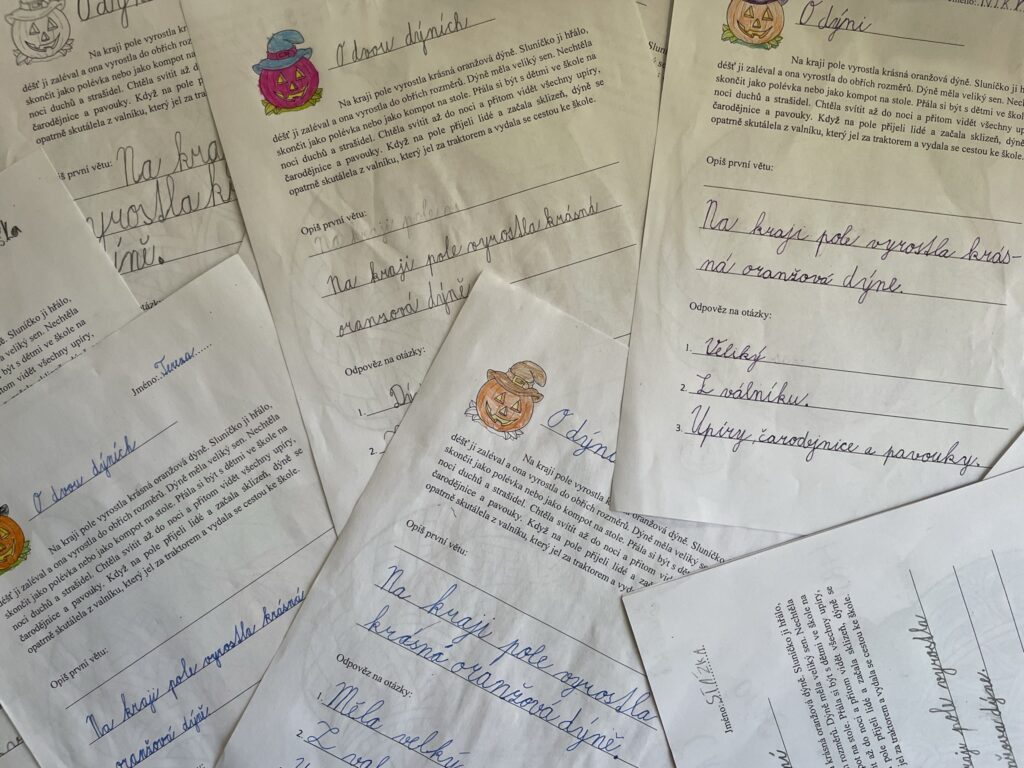 O dvou dýních
Na kraji pole vyrostla krásná oranžová dýně. Sluníčko ji hřálo,
déšť ji zaléval a ona vyrostla do obřích rozměrů. Dýně měla veliký sen. Nechtěla
skončit jako polévka nebo jako kompot na stole. Přála si být s dětmi ve škole na
noci duchů a strašidel. Chtěla svítit až do noci a přitom vidět všechny upíry,
čarodějnice a pavouky. Když na pole přijeli lidé a začala sklizeň, dýně se
opatrně skutálela z valníku, který jel za traktorem a vydala se cestou ke škole.
Opiš první větu:
Na kraji pole vyrostla krásná
oranžová dýně
Odpověz na otázky:
1.
2.
O dýni
Na kraji pole vyrostla krásná oranžová dýně. Sluníčko
déšť ji zaléval a ona vyrostla do obřích rozměrů. Dýně měla veliký sen.
skončit jako polévka nebo jako kompot na stole. Přála si být s dětmi ve
noci duchů a strašidel. Chtěla svítit až do noci a přitom vidět všechny
čarodějnice a pavouky. Když na pole přijeli lidé a začala sklizeň,
opatrně skutálela z valníku, který jel za traktorem a vydala se cestou ke škole.
Opiš první větu:
Na kraji pole vyrostla krás-
ná oranžová dýne.
Odpověz na otázky:
1. Veliký
2. Z válníku.
3. Upíry, čarodějnice a pavouky.
Opiš první větu:
Na kra
yrostla k
ýně.
Sluníčko ji hřálo,
veliký sen. Nechtěla
s dětmi ve škole na
Jméno: Tereza
O dvou dýních
Na kraji pole vyrostla krásná oranžová dýně. Sluníčko ji hřálo,
déšť ji zaléval a ona vyrostla do obřích rozměrů. Dýně měla veliký sen. Nechtěla
skončit jako polévka nebo jako kompot na stole. Přála si být s dětmi ve škole na
noci duchů a strašidel. Chtěla svítit až do noci a přitom vidět všechny upíry,
čarodějnice a pavouky. Když na pole přijeli lidé a začala sklizeň, dýně se
opatrně skutálela z valníku, který jel za traktorem a vydala se cestou ke škole.
Opiš první větu:
Na kraji pole vyrostla krásná
oranžová dýně
O dýni
Na kraji pole vyrostla k
déšť ji zaléval a ona vyrostla do obřích rozměrů. Dýně měla veliký se
skončit jako polévka nebo jako kompot na stole. Přála si být s
noci duchů a strašidel. Chtěla svítit až do noci a přitom vid
čarodějnice a pavouky. Když na pole přijeli lidé a zač
opatrně skutálela z valníku, který jel za traktorem a vyd
Opiš první větu:
Na kraji pole vyrostla
krásná oranžová dýně.
Odpověz na otázky:
1. Měla velký
2. Z val
Jméno:
krásná oranžová dýně. Sluníčko ji hřálo,
rozměrů. Dýně měla veliký sen. Nechtěla
na stole. Přála si být s dětmi ve škole na
až do noci a přitom vidět všechny upíry,
pole přijeli lidé a začala sklizeň, dýně se
jel za traktorem a vydala se cestou ke škole.
pole vyrostla